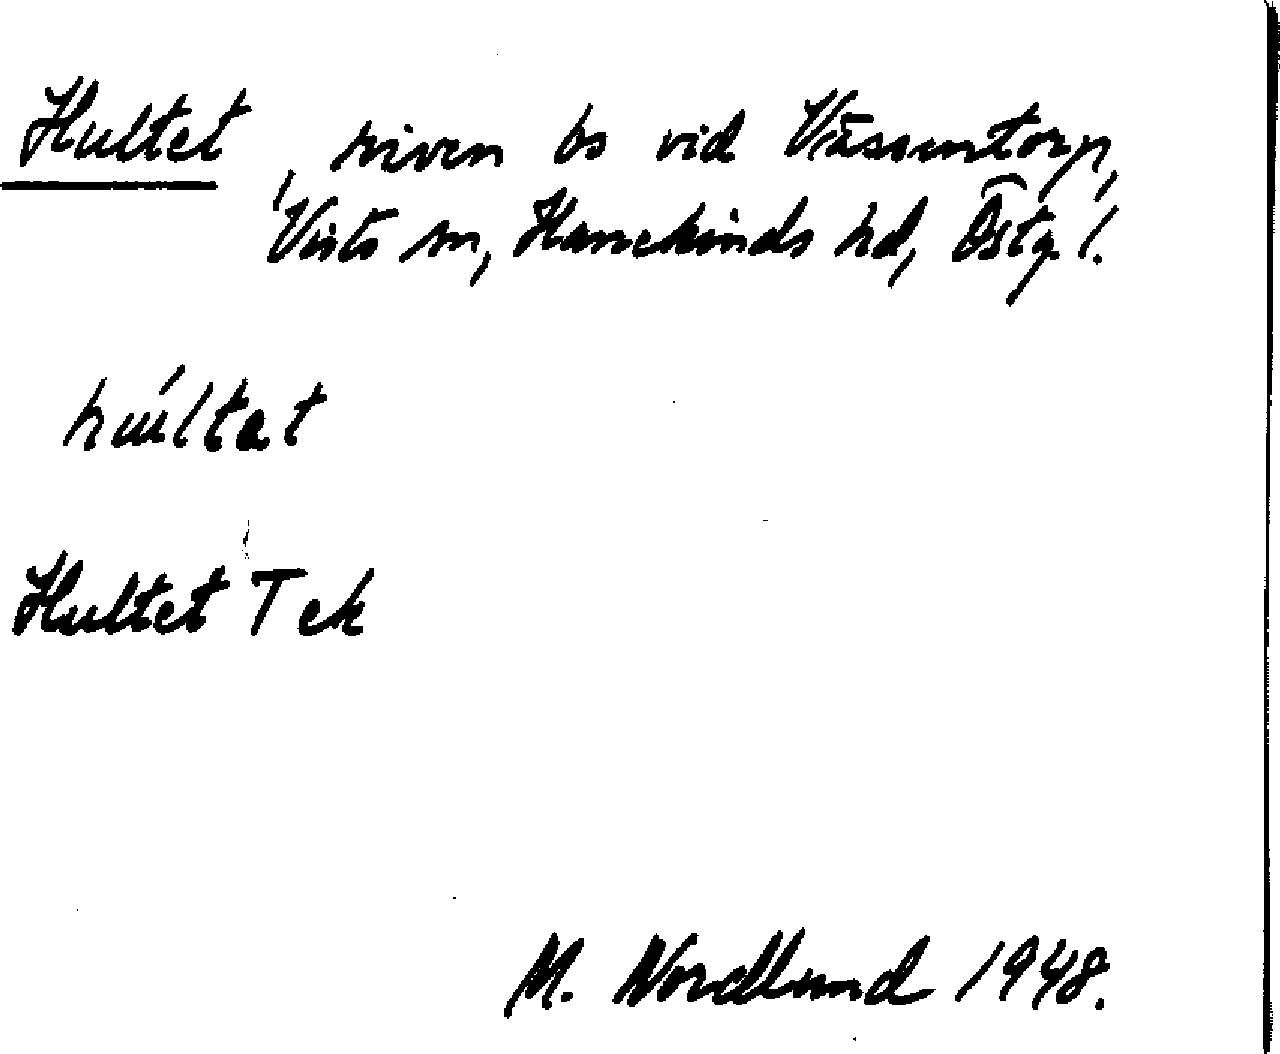 Hultet, riven bs vid Vässentorp,
Vists sn, Hanekinds hd, Östg. l.
húltat
Hultet T ek
M. Nordlund 1948.